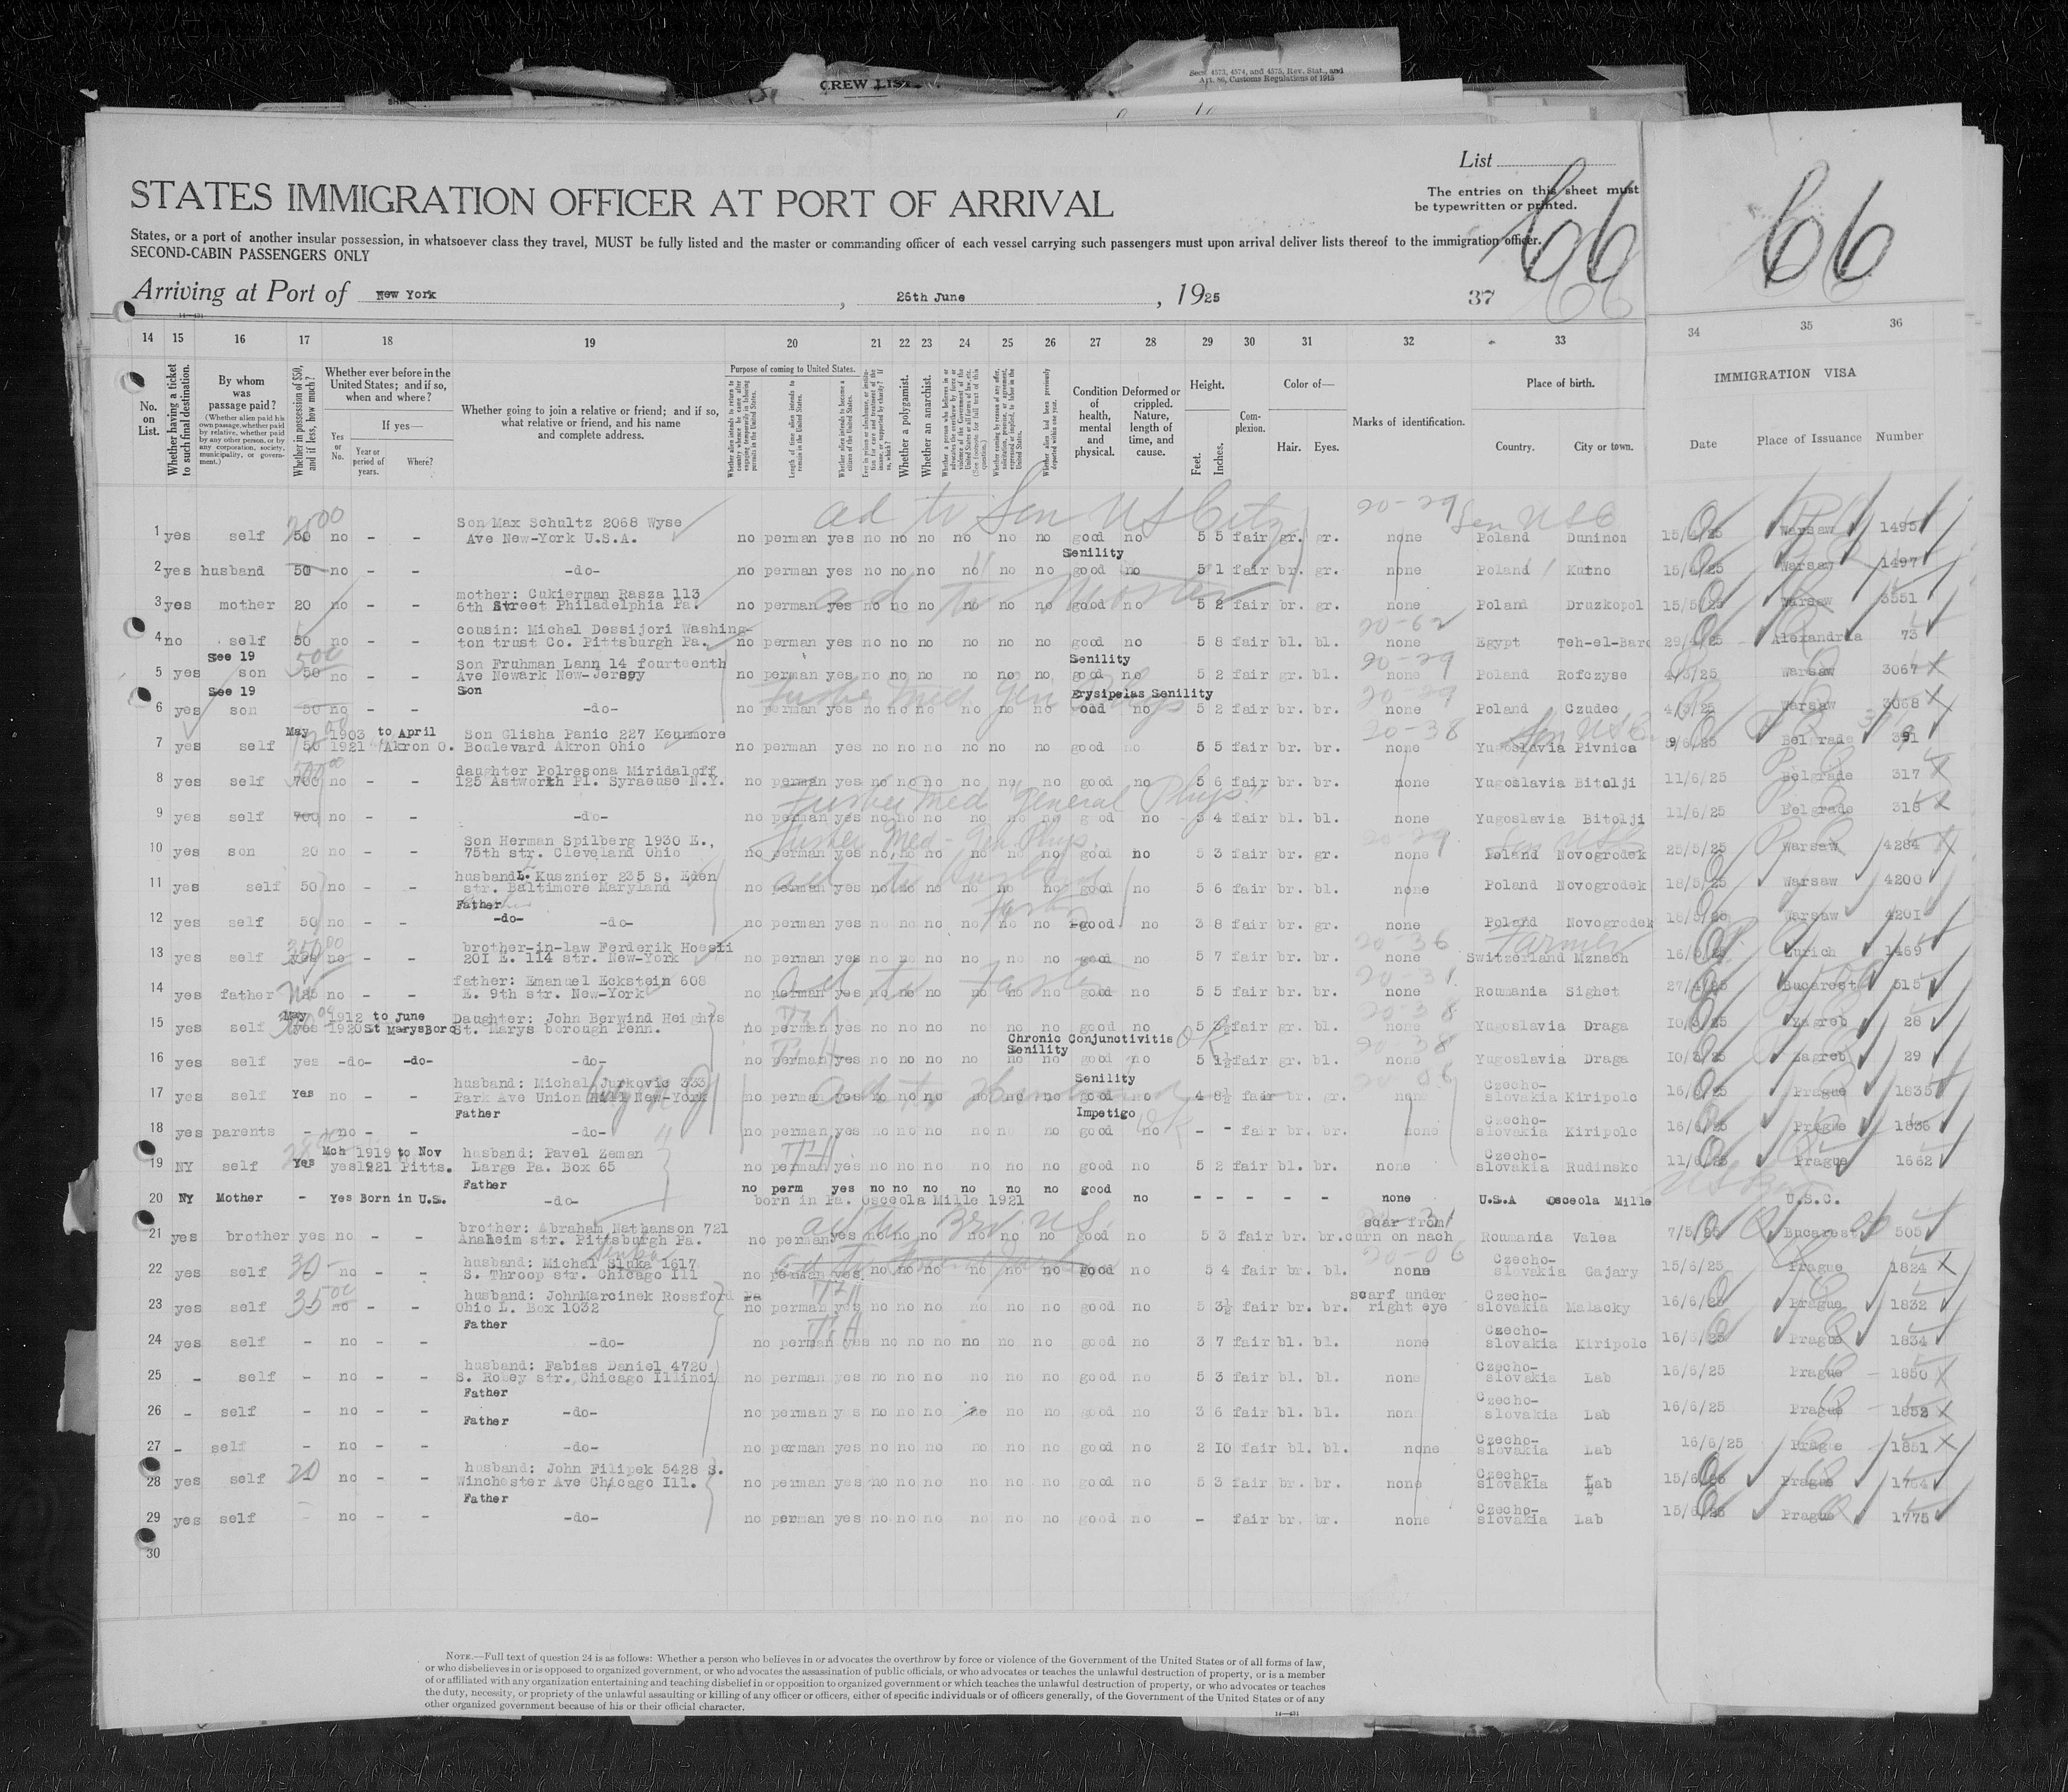 CREW LIST
Secs. 4573, 4574, and 4575, Rev. Stat., and
Art. 86, Customs Regulations of 1915
List
STATES IMMIGRATION OFFICER AT PORT OF ARRIVAL
The entries on this sheet must
be typewritten or printed.
66
66
States, or a port of another insular possession, in whatsoever class they travel, MUST be fully listed and the master or commanding officer of each vessel carrying such passengers must upon arrival deliver lists thereof to the immigration officer.
SECOND-CABIN PASSENGERS ONLY
Arriving at Port of New York, 26th June, 1925 37
14 15 16 17 18 19 20 21 22 23 24 25 26 27 28 29 30 31 32 33 34 35 36
No. on List.
Whether having a ticket to such final destination.
By whom was passage paid?
(Whether alien paid his own passage, whether paid by relative, whether paid by any other person, or by any corporation, society, municipality, or government.)
Whether in possession of $50, and if less, how much?
Whether ever before in the United States; and if so, when and where?
If yes—
Yes or No.
Year or period of years.
Where?
Whether going to join a relative or friend; and if so, what relative or friend, and his name and complete address.
Purpose of coming to United States.
Length of time alien intends to remain in the United States.
Whether alien intends to become a citizen of the United States.
Whether a polygamist.
Whether an anarchist.
Condition of health, mental and physical.
Deformed or crippled. Nature, length of time, and cause.
Height.
Feet. Inches.
Complexion.
Color of—
Hair. Eyes.
Marks of identification.
Place of birth.
Country. City or town.
IMMIGRATION VISA
Date Place of Issuance Number
ad to Son US Citz 20-29 Son USC
1 yes self 50 no - - Son Max Schultz 2068 Wyse Ave New-York U.S.A. no perman yes no no no no no no good no 5 5 fair gr. gr. none Poland Duninon 15/4/25 Warsaw 1495
Senility
2 yes husband 50 no - - -do- no perman yes no no no no no no good no 5 1 fair br. gr. none Poland Kutno Warsaw 1497
3 yes mother 20 no - - mother: Cukierman Rasza 113 6th Street Philadelphia Pa. no perman yes no no no no no no good no 5 2 fair br. gr. none Poland Druzkopol 15/5/25 Warsaw 3551
4 no self 50 no - - cousin: Michal Dessijori Washington trust Co. Pittsburgh Pa. no perman yes no no no no no no good no 5 8 fair bl. bl. none Egypt Teh-el-Baro 29/4/25 Alexandria 73
See 19 Senility 20-29
5 yes son 50 no - - Son Fruhman Lann 14 fourteenth Ave Newark New-Jersey no perman yes no no no no no no good no 5 2 fair gr. bl. none Poland Rofczyse 4/3/25 Warsaw 3067
See 19 Son Erysipelas Senility 20-29
6 yes son 50 no - - -do- no perman yes no no no no no no good no 5 2 fair br. br. none Poland Czudec 4/3/25 Warsaw 3068
May 1903 to April 20-38
7 yes self 50 1921 Akron O. Son Glisha Panic 227 Keunmore Boulevard Akron Ohio no perman yes no no no no no no good no 5 5 fair br. br. none Yugoslavia Pivnica 9/6/25 Belgrade
8 yes self 700 no - - daughter Polresona Miridaloff 125 Astworth Pl. Syracuse N.Y. no perman yes no no no no no no good no 5 6 fair br. br. none Yugoslavia Bitolji 11/6/25 Belgrade 317
9 yes self 700 no - - -do- no perman yes no no no no no no good no 5 4 fair br. bl. none Yugoslavia Bitolji 11/6/25 Belgrade 318
10 yes son 20 no - - Son Herman Spilberg 1930 E., 75th str. Cleveland Ohio no perman yes no no no no no no good no 5 3 fair br. gr. none Poland Novogrodek 25/5/25 Warsaw 4284
11 yes self 50 no - - husband L. Kusznier 235 S. Eden str. Baltimore Maryland no perman yes no no no no no no good no 5 6 fair br. bl. none Poland Novogrodek 18/5/25 Warsaw 4200
Father
12 yes self 50 no - - -do- -do- no perman yes no no no no no no good no 3 8 fair br. gr. none Poland Novogrodek Warsaw 4201
20-36 Farmer
13 yes self yes no - - brother-in-law Ferderik Hoesli 201 E. 114 str. New-York no perman yes no no no no no no good no 5 7 fair br. br. none Switzerland Mznach Zurich 1469
14 yes father no - - father: Emanuel Eckstein 608 E. 9th str. New-York no perman yes no no no no no no good no 5 5 fair br. br. none Roumania Sighet 27/4/25 Bucarest 515
May 1912 to June 20-38
15 yes self yes 1920 St MarysBoro Daughter: John Berwind Heights St. Marys borough Penn. no perman yes no no no no no no good no 5 3½ fair gr. bl. none Yugoslavia Draga Zagreb 28
Chronic Conjunctivitis OK
Senility 20-38
16 yes self yes -do- -do- -do- no perman yes no no no no no no good no 5 1½ fair gr. bl. none Yugoslavia Draga Zagreb 29
Senility
17 yes self Yes no - - husband: Michal Jurkovic 333 Park Ave Union Hill New-York no perman yes no no no no no no good no 4 8½ fair br. gr. none Czecho-slovakia Kiripolc 16/6/25 Prague 1835
Father Impetigo OK
18 yes parents - no - - -do- no perman yes no no no no no no good no - - fair br. br. none Czecho-slovakia Kiripolc 16/6/25 Prague 1836
Mch 1919 to Nov
19 NY self Yes yes 1921 Pitts. husband: Pavel Zeman Large Pa. Box 65 no perman yes no no no no no no good no 5 2 fair bl. br. none Czecho-slovakia Rudinsko 11/6/25 Prague 1662
Father no perm yes no no no no no no good
20 NY Mother - Yes Born in U.S. -do- born in Pa. Osceola Mille 1921 no - - - - - none U.S.A Osceola Mille U.S.C.
21 yes brother yes no - - brother: Abraham Nathanson 721 Anaheim str. Pittsburgh Pa. no perman yes no no no no no no good no 5 3 fair br. br. scar from Roumania Valea 7/5/25 Bucarest 505
22 yes self 30 no - - husband: Michal Sluka 1617 S. Throop str. Chicago Ill no perman yes no no no no no no good no 5 4 fair br. bl. none Czecho-slovakia Gajary 15/6/25 Prague 1824
23 yes self 35 no - - husband: JohnMarcinek Rossford Pa Ohio L. Box 1032 no perman yes no no no no no no good no 5 3½ fair br. br. scarf under right eye Czecho-slovakia Malacky 16/6/25 Prague 1832
Father
24 yes self - no - - -do- no perman yes no no no nn no no good no 3 7 fair bl. bl. none Czecho-slovakia Kiripolc 16/6/25 Prague 1834
25 - self - no - - husband: Fabias Daniel 4720 S. Robey str. Chicago Illinoi no perman yes no no no no no no good no 5 3 fair bl. bl. none Czecho-slovakia Lab 16/6/25 Prague 1850
Father
26 - self - no - - -do- no perman yes no no no no no no good no 3 6 fair bl. bl. non Czecho-slovakia Lab 16/6/25 Prague 1852
Father
27 - self - no - - -do- no perman yes no no no no no no good no 2 10 fair bl. bl. none Czecho-slovakia Lab 16/6/25 Prague 1851
28 yes self 20 no - - husband: John Filipek 5428 S. Winchester Ave Chicago Ill. no perman yes no no no no no no good no 5 3 fair br. br. none Czecho-slovakia Lab 15/6/25 Prague 1764
Father
29 yes self - no - - -do- no perman yes no no no no no no good no - fair br. br. none Czecho-slovakia Lab 15/6/25 Prague 1775
30
NOTE.—Full text of question 24 is as follows: Whether a person who believes in or advocates the overthrow by force or violence of the Government of the United States or of all forms of law,
or who disbelieves in or is opposed to organized government, or who advocates the assassination of public officials, or who advocates or teaches the unlawful destruction of property, or is a member
of or affiliated with any organization entertaining and teaching disbelief in or opposition to organized government or which teaches the unlawful destruction of property, or who advocates or teaches
the duty, necessity, or propriety of the unlawful assaulting or killing of any officer or officers, either of specific individuals or of officers generally, of the Government of the United States or of any
other organized government because of his or their official character.
14—431